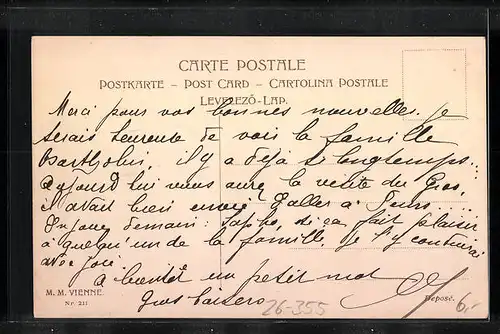 CARTE POSTALE
POSTKARTE – POST CARD – CARTOLINA POSTALE
LEVELEZŐ-LAP.
Merci pour vos bonnes nouvelles. je
serais heureuse de voir la famille
Bartholin, il y a déjà si longtemps...
Aujourd'hui nous avons la visite du Gros,
il avait bien envie d'aller à
Un jour demain: Sapho, si ça fait plaisir
à quelqu'un de la famille, je l'y conduirai
avec joie.
A bientôt un petit mot
Gros baisers
M. M. VIENNE.
Nr. 211
26-355
Deposé.
6,-